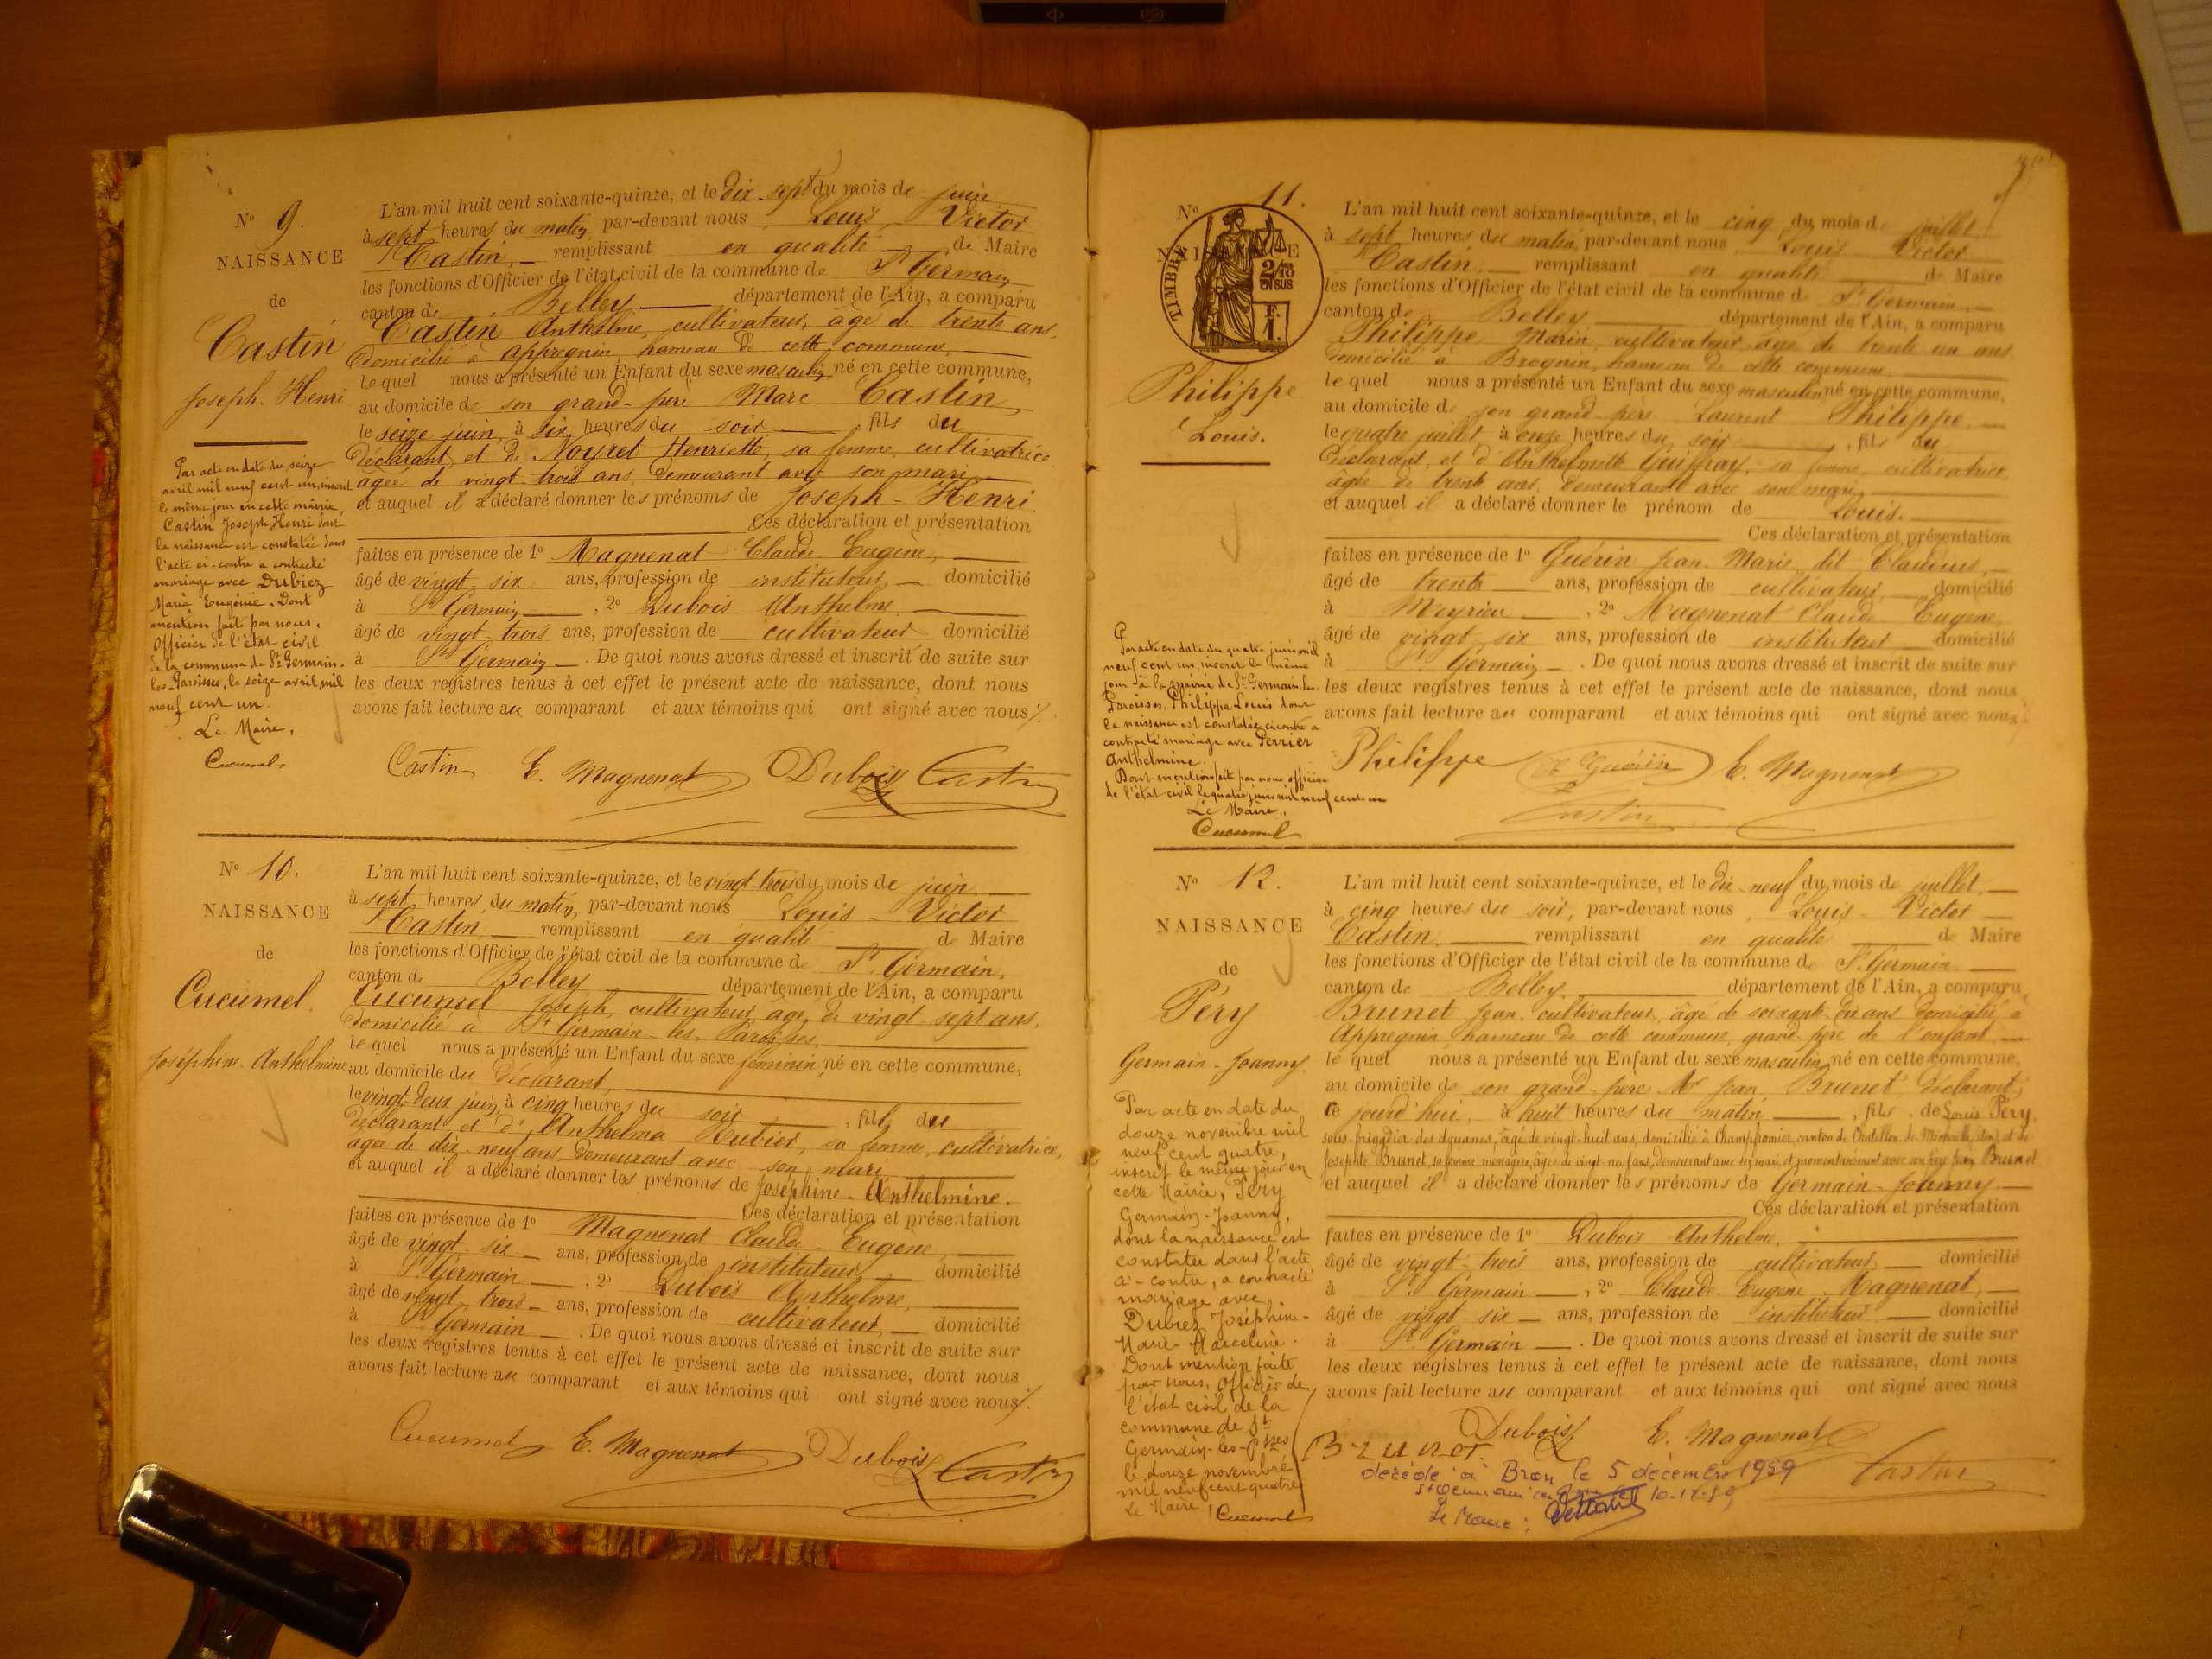 N° 9.
NAISSANCE
de
Castin
Joseph-Henri
Par acte en date du seize
avril mil neuf cent un, inscrit
le même jour en cette mairie,
Castin Joseph Henri dont
la naissance est constatée dans
l'acte ci-contre a contracté
mariage avec Dubiez
Marie Eugénie. Dont
mention faite par nous,
Officier de l'état civil
de la commune de St Germain-
les-Paroisses, le seize avril mil
neuf cent un.
Le Maire,
Cucumel
L'an mil huit cent soixante-quinze, et le dix-sept du mois de juin
à sept heures du matin, par-devant nous Louis Victor
Castin, remplissant en qualité de Maire
les fonctions d'Officier de l'état civil de la commune de St Germain
canton de Belley département de l'Ain, a comparu
Castin Anthelme, cultivateur, âgé de trente ans,
domicilié à Appregnin, hameau de cette commune,
lequel nous a présenté un Enfant du sexe masculin, né en cette commune,
au domicile de son grand-père Marc Castin,
le seize juin, à six heures du soir, fils du
déclarant, et de Noyret Henriette, sa femme, cultivatrice
âgée de vingt-trois ans, demeurant avec son mari
et auquel il a déclaré donner les prénoms de Joseph-Henri
Ces déclaration et présentation
faites en présence de 1° Magnenat Claude Eugène,
âgé de vingt-six ans, profession de instituteur, domicilié
à St Germain, 2° Dubois Anthelme,
âgé de vingt-trois ans, profession de cultivateur domicilié
à St Germain. De quoi nous avons dressé et inscrit de suite sur
les deux registres tenus à cet effet le présent acte de naissance, dont nous
avons fait lecture au comparant et aux témoins qui ont signé avec nous
Castin E. Magnenat Dubois Castin
N° 10.
NAISSANCE
de
Cucumel
Joséphine-Anthelmine
L'an mil huit cent soixante-quinze, et le vingt-trois du mois de juin
à sept heures du matin, par-devant nous Louis-Victor
Castin remplissant en qualité de Maire
les fonctions d'Officier de l'état civil de la commune de St Germain,
canton de Belley département de l'Ain, a comparu
Cucumel Joseph, cultivateur, âgé de vingt-sept ans,
domicilié à St Germain-les-Paroisses,
lequel nous a présenté un Enfant du sexe féminin, né en cette commune,
au domicile du déclarant,
le vingt-deux juin, à cinq heures du soir, fille du
déclarant et d'Anthelma Hubier, sa femme, cultivatrice,
âgée de dix-neuf ans, demeurant avec son mari
et auquel il a déclaré donner les prénoms de Joséphine-Anthelmine.
Ces déclaration et présentation
faites en présence de 1° Magnenat Claude Eugène,
âgé de vingt-six ans, profession de instituteur domicilié
à St Germain, 2° Dubois Anthelme,
âgé de vingt-trois ans, profession de cultivateur, domicilié
à St Germain. De quoi nous avons dressé et inscrit de suite sur
les deux registres tenus à cet effet le présent acte de naissance, dont nous
avons fait lecture au comparant et aux témoins qui ont signé avec nous
Cucumel E. Magnenat Dubois Castin
N° 11.
NAISSANCE
TIMBRE
2/10
EN SUS
1 F.
Philippe
Louis.
Par acte en date du quatre juin mil
neuf cent un, inscrit le même
jour à la mairie de St Germain-les-
Paroisses, Philippe Louis dont
la naissance est constatée ci-contre a
contracté mariage avec Perrier
Anthelmine.
Dont mention faite par nous, officier
de l'état civil le quatre juin mil neuf cent un
Le Maire,
Cucumel
L'an mil huit cent soixante-quinze, et le cinq du mois de juillet
à sept heures du matin, par-devant nous Louis Victor
Castin remplissant en qualité de Maire
les fonctions d'Officier de l'état civil de la commune de St Germain
canton de Belley département de l'Ain, a comparu
Philippe Marin, cultivateur, âgé de trente un ans,
domicilié à Brognin, hameau de cette commune
lequel nous a présenté un Enfant du sexe masculin né en cette commune,
au domicile de son grand-père Laurent Philippe
le quatre juillet à onze heures du soir, fils du
déclarant, et d'Anthelmette Guiffray, sa femme, cultivatrice,
âgée de trente ans, demeurant avec son mari
et auquel il a déclaré donner le prénom de Louis.
Ces déclaration et présentation
faites en présence de 1° Guérin Jean-Marie, dit Claudius,
âgé de trente ans, profession de cultivateur, domicilié
à Meyrieu, 2° Magnenat Claude Eugène,
âgé de vingt-six ans, profession de instituteur domicilié
à St Germain. De quoi nous avons dressé et inscrit de suite sur
les deux registres tenus à cet effet le présent acte de naissance, dont nous
avons fait lecture au comparant et aux témoins qui ont signé avec nous
Philippe Guérin E. Magnenat
Castin
N° 12.
NAISSANCE
de
Péry
Germain-Joanny
Par acte en date du
douze novembre mil
neuf cent quatre,
inscrit le même jour en
cette Mairie, Péry
Germain-Joanny,
dont la naissance est
constatée dans l'acte
ci-contre, a contracté
mariage avec
Dubiez Joséphine-
Marie-Marceline.
Dont mention faite
par nous, Officier de
l'état civil de la
commune de St
Germain-les-Pses
le douze novembre
mil neuf cent quatre
Le Maire, Cucumel
L'an mil huit cent soixante-quinze, et le dix-neuf du mois de juillet
à cinq heures du soir, par-devant nous Louis-Victor
Castin remplissant en qualité de Maire
les fonctions d'Officier de l'état civil de la commune de St Germain
canton de Belley département de l'Ain, a comparu
Brunet Jean, cultivateur, âgé de soixante-dix ans domicilié à
Appregnin, hameau de cette commune, grand-père de l'enfant
lequel nous a présenté un Enfant du sexe masculin, né en cette commune,
au domicile de son grand-père Jean Brunet déclarant,
ce jourd'hui à huit heures du matin, fils de Louis Péry,
sous-brigadier des douanes, âgé de vingt-huit ans, domicilié à Champfromier, canton de Chatillon-de-Michaille, Ain, et de
Josephte Brunet, sa femme, ménagère, âgée de vingt-neuf ans, demeurant avec son mari, et momentanément avec son père Jean Brunet
et auquel il a déclaré donner les prénoms de Germain-Joanny
Ces déclaration et présentation
faites en présence de 1° Dubois Anthelme,
âgé de vingt-trois ans, profession de cultivateur, domicilié
à St Germain, 2° Claude Eugène Magnenat,
âgé de vingt-six ans, profession de instituteur domicilié
à St Germain. De quoi nous avons dressé et inscrit de suite sur
les deux registres tenus à cet effet le présent acte de naissance, dont nous
avons fait lecture au comparant et aux témoins qui ont signé avec nous
Dubois E. Magnenat
Brunet Castin
décédé à Bron le 5 décembre 1959
St Germain 10-12-59
Le Maire: